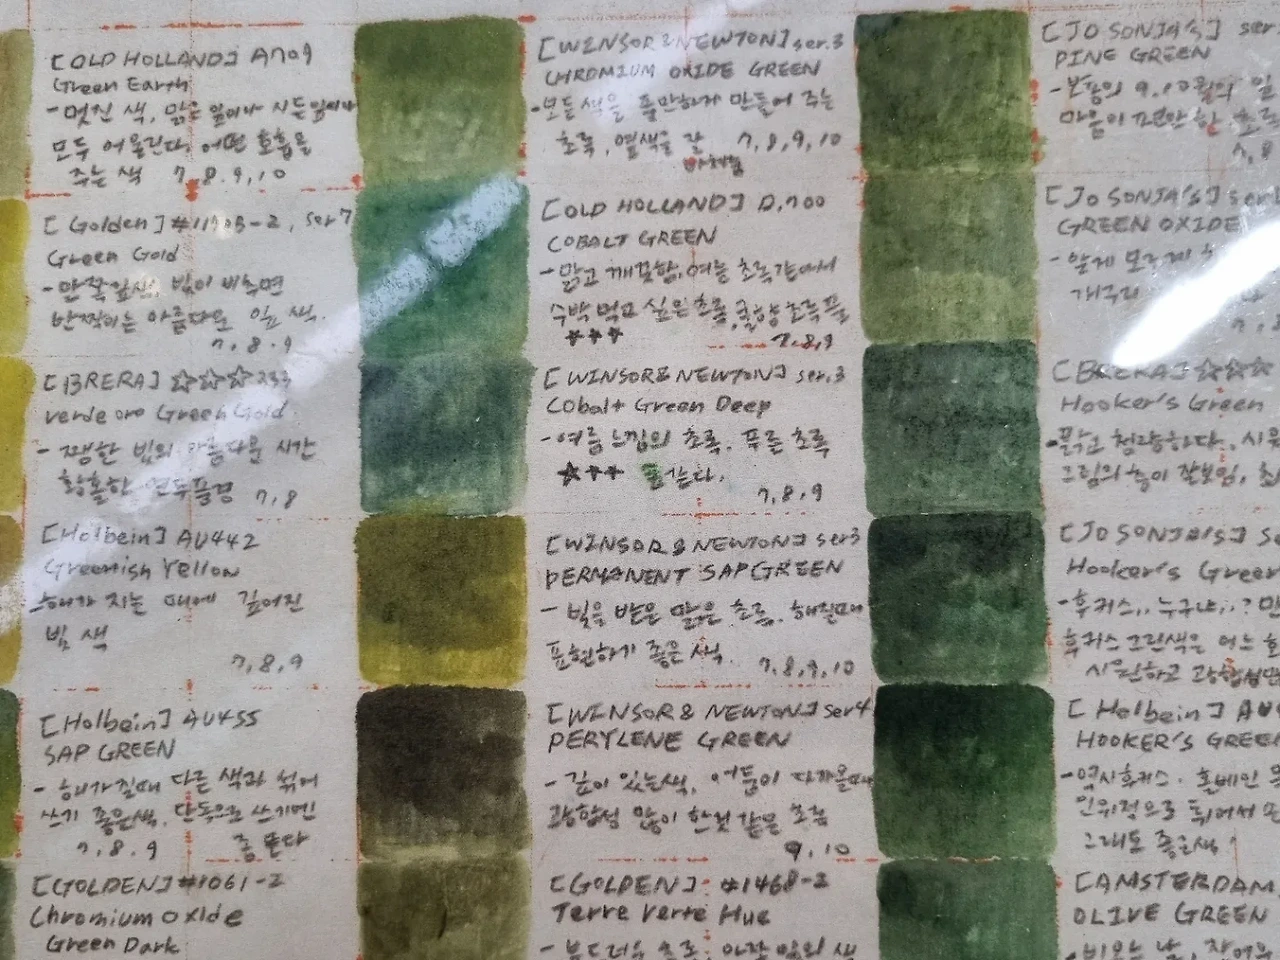 [OLD HOLLAND] A709
Green Earth
- 멋진 색, 맑은 잎이나 시든 잎이나
모두 어울린다. 어떤 호흡을
주는 색 7.8.9,10
[Golden] #11705-2, ser7
Green Gold
- 반짝잎색, 빛이 비추면
반짝이는 아름다운 잎 색.
7.8.9
[BRERA] ☆☆☆ 233
verde oro Green Gold
- 쨍한 빛의 아름다운 시간
황홀한 연두풀빛 7,8
[Holbein] AU442
Greenish Yellow
- 해가 지는 때에 깊어진
빛 색
7,8,9
[Holbein] AU455
SAP GREEN
- 해가 질때 다른 색과 섞어
쓰기 좋은색. 단독으로 쓰기엔
7.8.9 좀 뜬다
[GOLDEN] #1061-2
Chromium oxide
Green Dark
[WINSOR & NEWTON] ser.3
CHROMIUM OXIDE GREEN
- 모든색을 풍만하게 만들어 주는
초록, 옆색을 잘 7,8,9,10
받쳐줌
[OLD HOLLAND] D,700
COBALT GREEN
- 맑고 깨끗함. 여름 초록같애서
수박 먹고 싶은 초록, 초록풀
★★★ 7.8,9
[WINSOR & NEWTON] ser.3
Cobalt Green Deep
- 여름 느낌의 초록. 푸른 초록
★★★ 같다.
7,8,9
[WINSOR & NEWTON] ser3
PERMANENT SAP GREEN
- 빛을 받은 맑은 초록. 해질때에
표현하기 좋은 색. 7.8,9,10
[WINSOR & NEWTON] ser4
PERYLENE GREEN
- 깊이 있는색, 어둠이 다가올때
광합성 많이 한것 같은 초록
9,10
[GOLDEN] #1468-2
Terre Verte Hue
- 부드러운 초록. 아잘 잎의 색
[JO SONJA's] ser
PINE GREEN
- 9.10월의 잎
마음이 편안한 초록
7,8
[JO SONJA's] ser
GREEN OXIDE
- 알게 모르게
개구리
[BRERA] ☆☆☆
Hooker's Green
- 맑고 청량하다. 시
그림의 층이 잘보임,
[JO SONJA's] Se
Hooker's Green
- 후커스.. 누구냐..?
후커스 그린색은 어느
시원하고 광합성
[Holbein] AU
HOOKER'S GREEN
- 역시 후커스. 홀베인
인위적으로 튀어서
그래도 좋은색.
[AMSTERDAM
OLIVE GREEN
- 비오는 날,